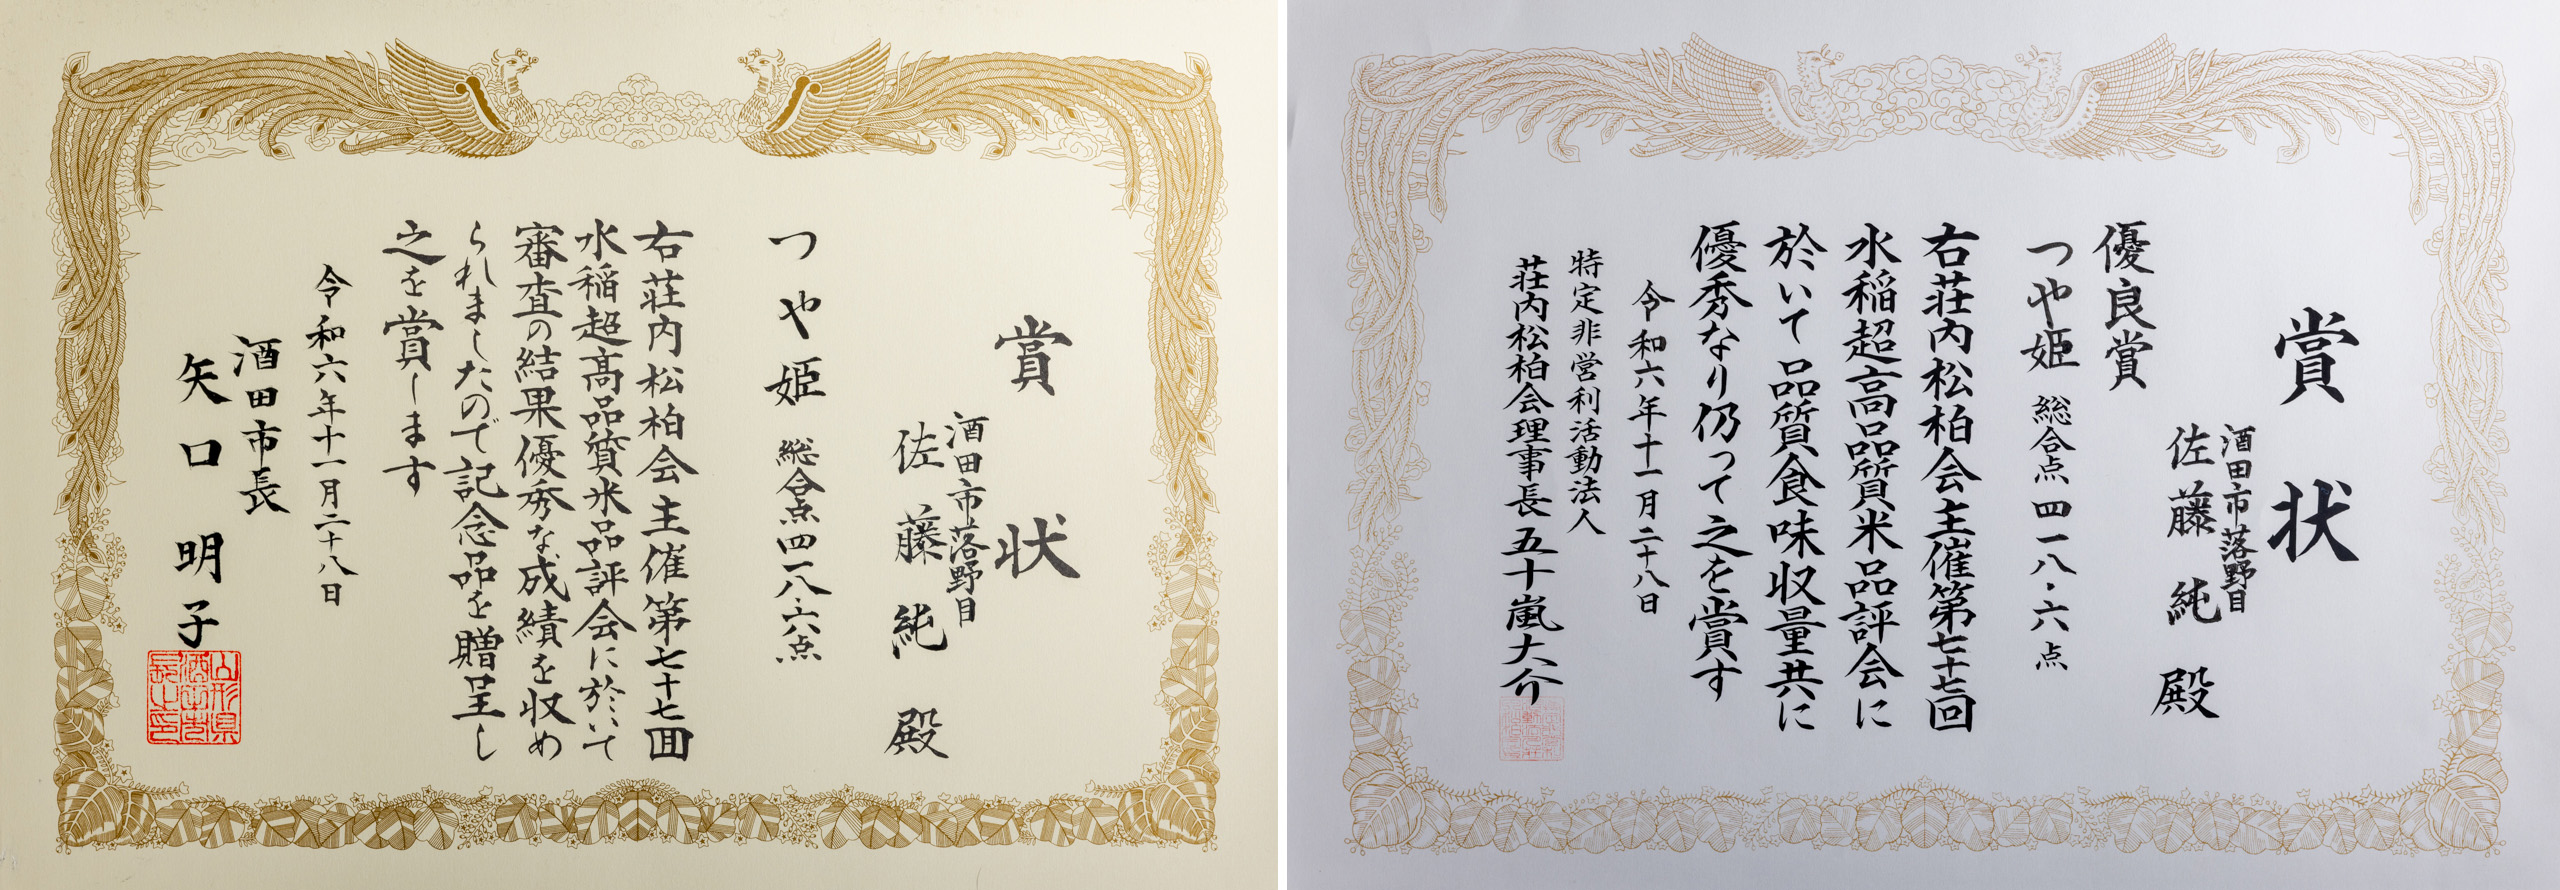 賞状
酒田市落野目
佐藤純殿
つや姫 総合点四一八・六点
右荘内松柏会主催第七十七回
水稲超高品質米品評会に於いて
審査の結果優秀な成績を収め
られましたので記念品を贈呈し
之を賞します
令和六年十一月二十八日
酒田市長
矢口明子
山形県
酒田市
長之印
賞状
酒田市落野目
佐藤純殿
優良賞
つや姫 総合点四一八・六点
右荘内松柏会主催第七十七回
水稲超高品質米品評会に
於いて品質食味収量共に
優秀なり仍って之を賞す
令和六年十一月二十八日
特定非営利活動法人
荘内松柏会理事長五十嵐大介